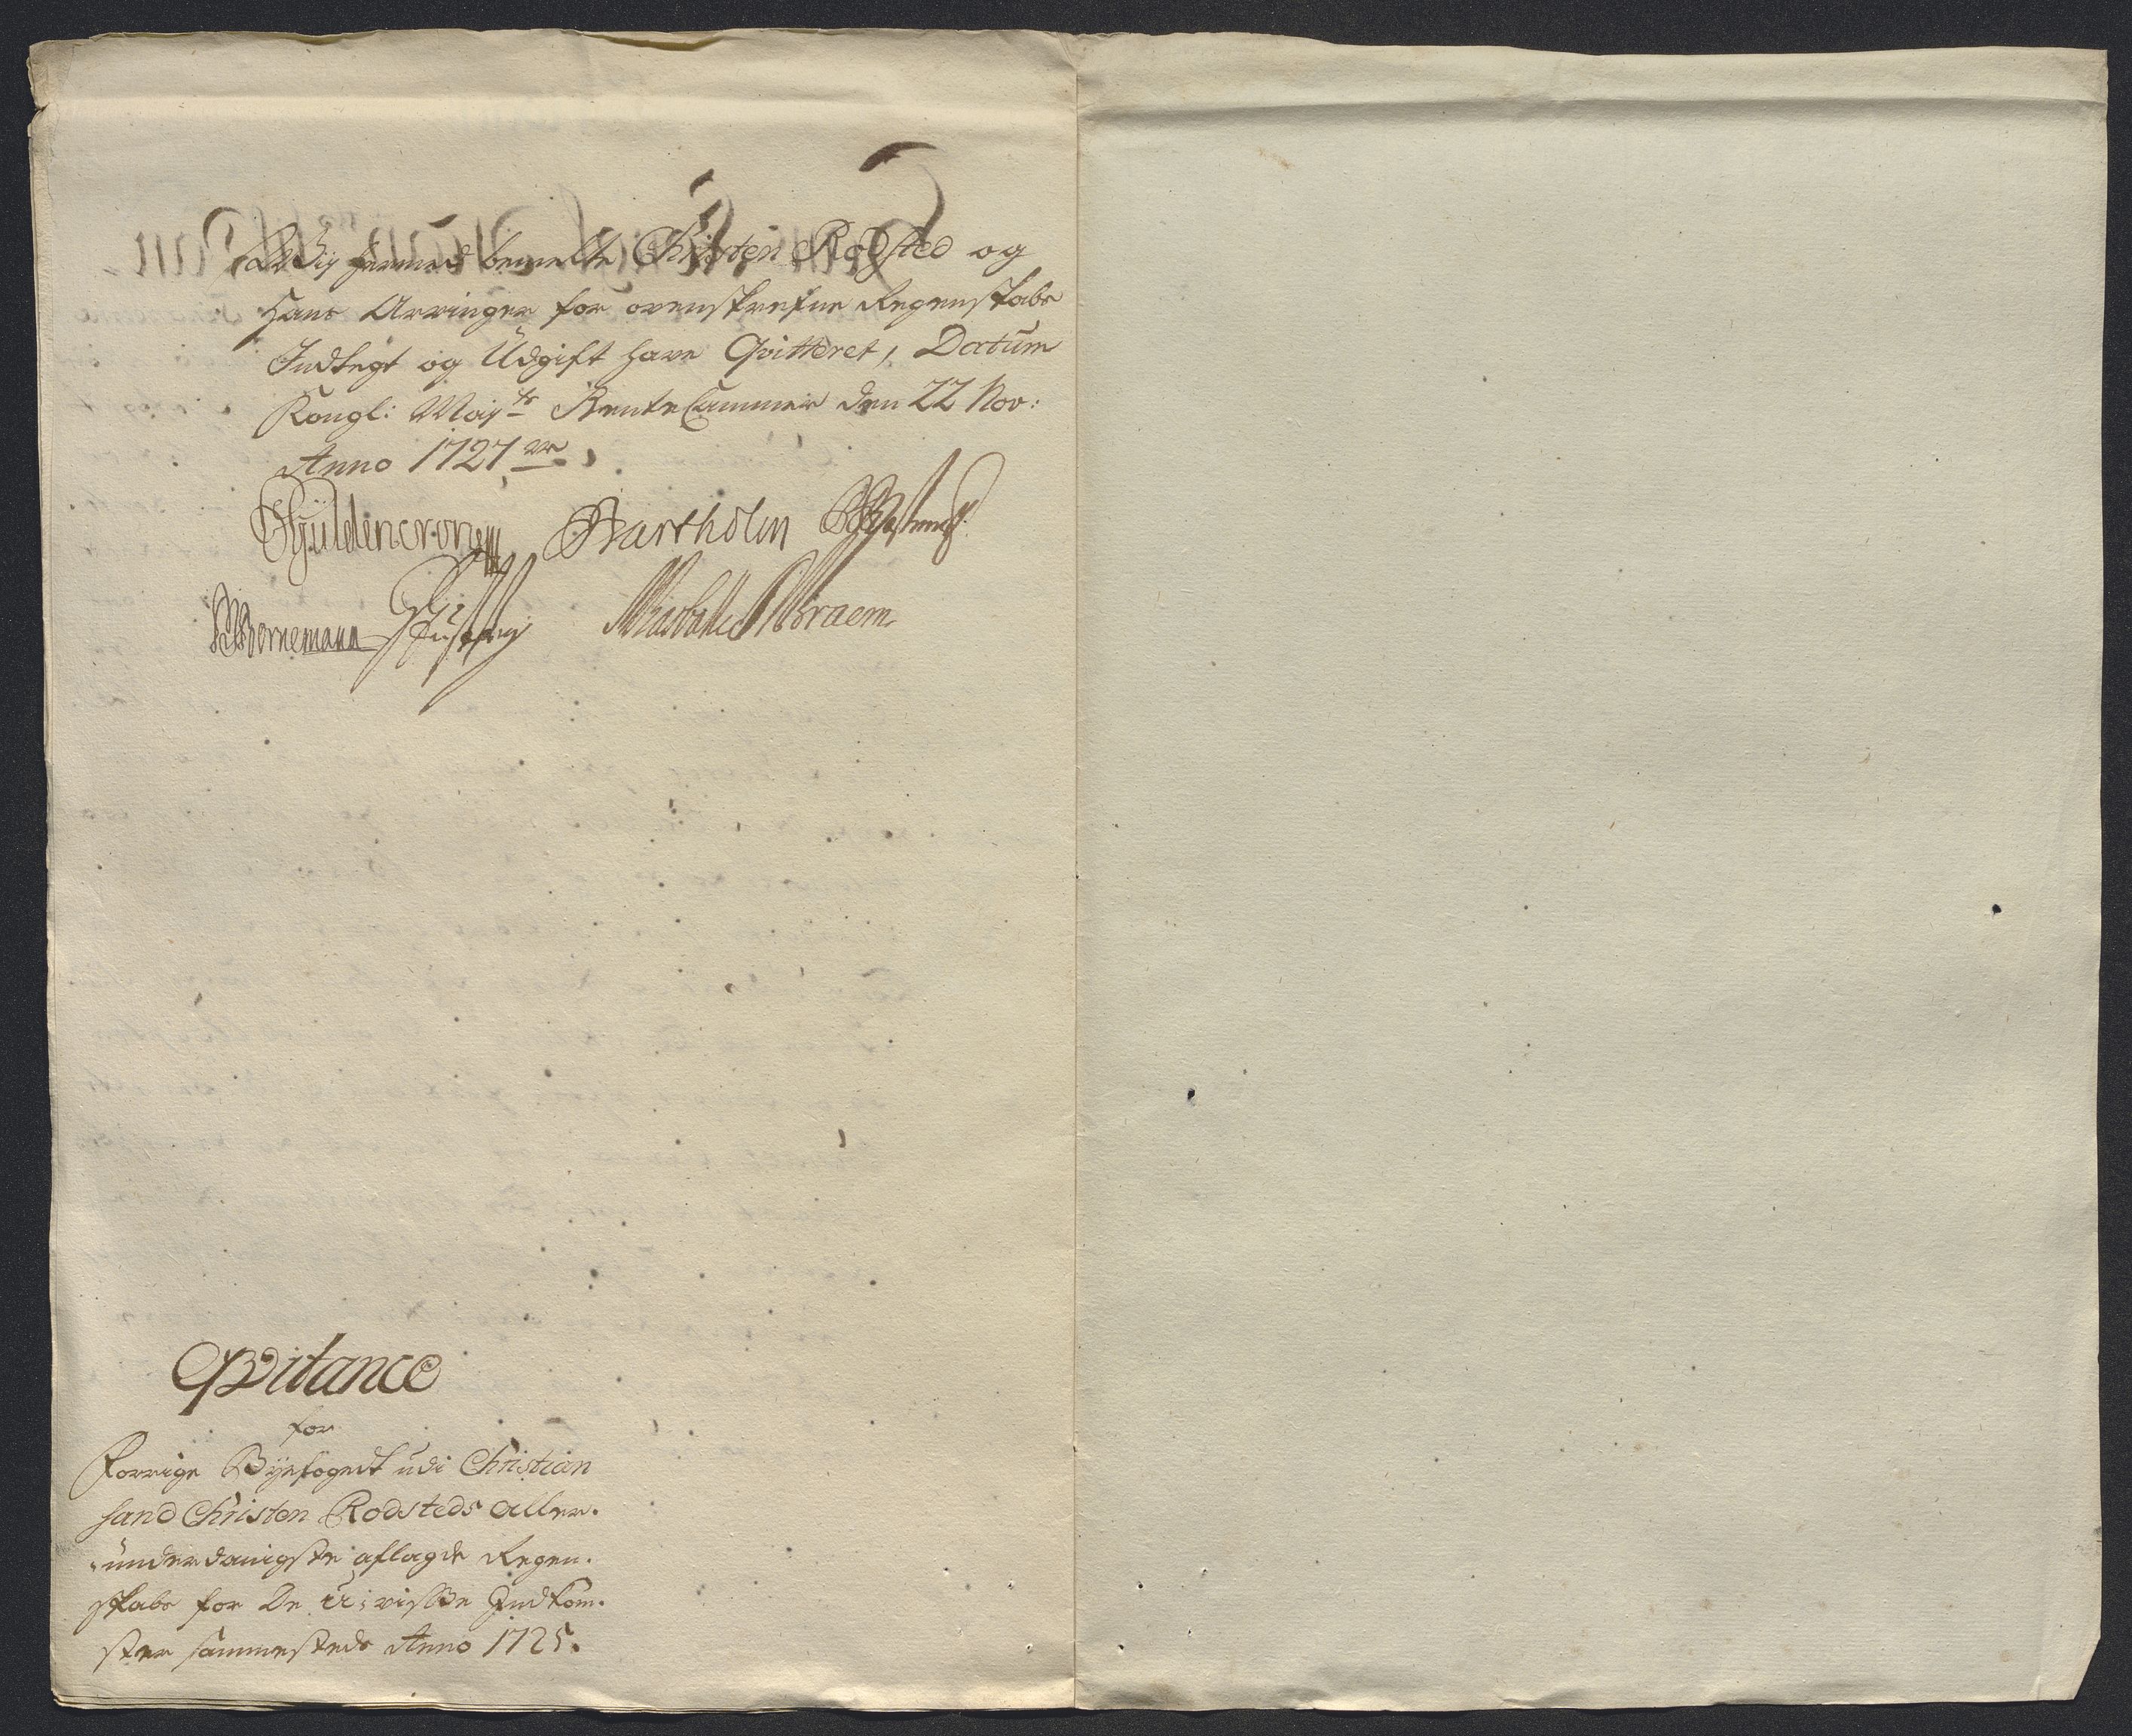 Wij hermed bemelte Christen Rodsted og
Hans Arvinger for ovenskrefne Regenskabs
Indtegt og Udgift have Qvitteret, Datum
Kongl: Mayts RenteCammer den 22 Nov:
Anno 1727
Güldencrone Bartholin
Bornemann Braem
Qvitance
for
Forrige Byefogedt udi Christian
sand Christen Rodsteds aller-
underdanigste aflagde Regen-
skabs for De U-visse Indkom-
ster sammesteds Anno 1725.